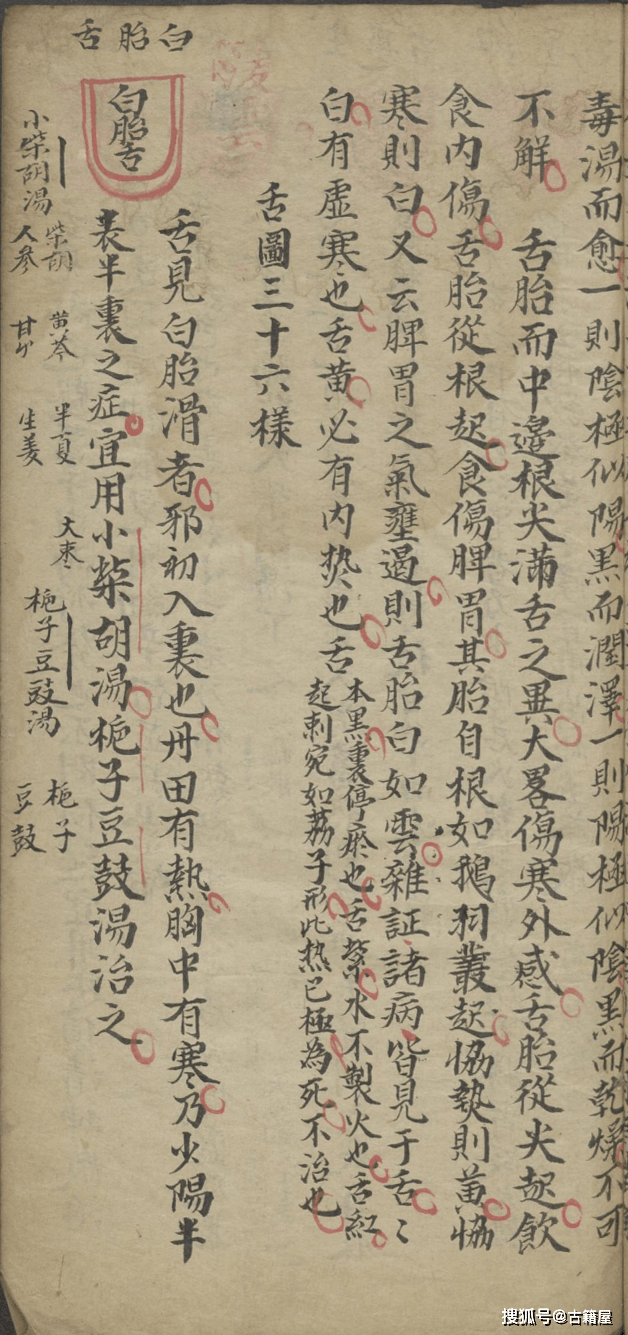 毒湯而愈一則陰極似陽黑而潤澤一則陽極似陰黑而乾燥不可
不解　舌胎而中邊根尖滿舌之異大畧傷寒外感舌胎從尖起飲
食內傷舌胎從根起食傷脾胃其胎自根如鵝羽叢起協熱則黄協
寒則白又云脾胃之氣壅遏則舌胎白如雲雜証諸病皆見于舌〻
白有虛寒也舌黄必有内热也舌
本黑裏停瘀也舌紫水不製火也舌紅
起刺宛如荔子形此热已極為死不治也
舌圖三十六樣
白胎舌
白胎舌
舌見白胎滑者邪初入裏也丹田有熱胸中有寒乃少陽半
表半裏之症宜用小柴胡湯栀子豆鼓湯治之
小柴胡湯
柴胡
人參
黄芩
甘艸
半夏
生姜
大棗
栀子豆豉湯
栀子
豆鼓
搜狐号@古籍屋